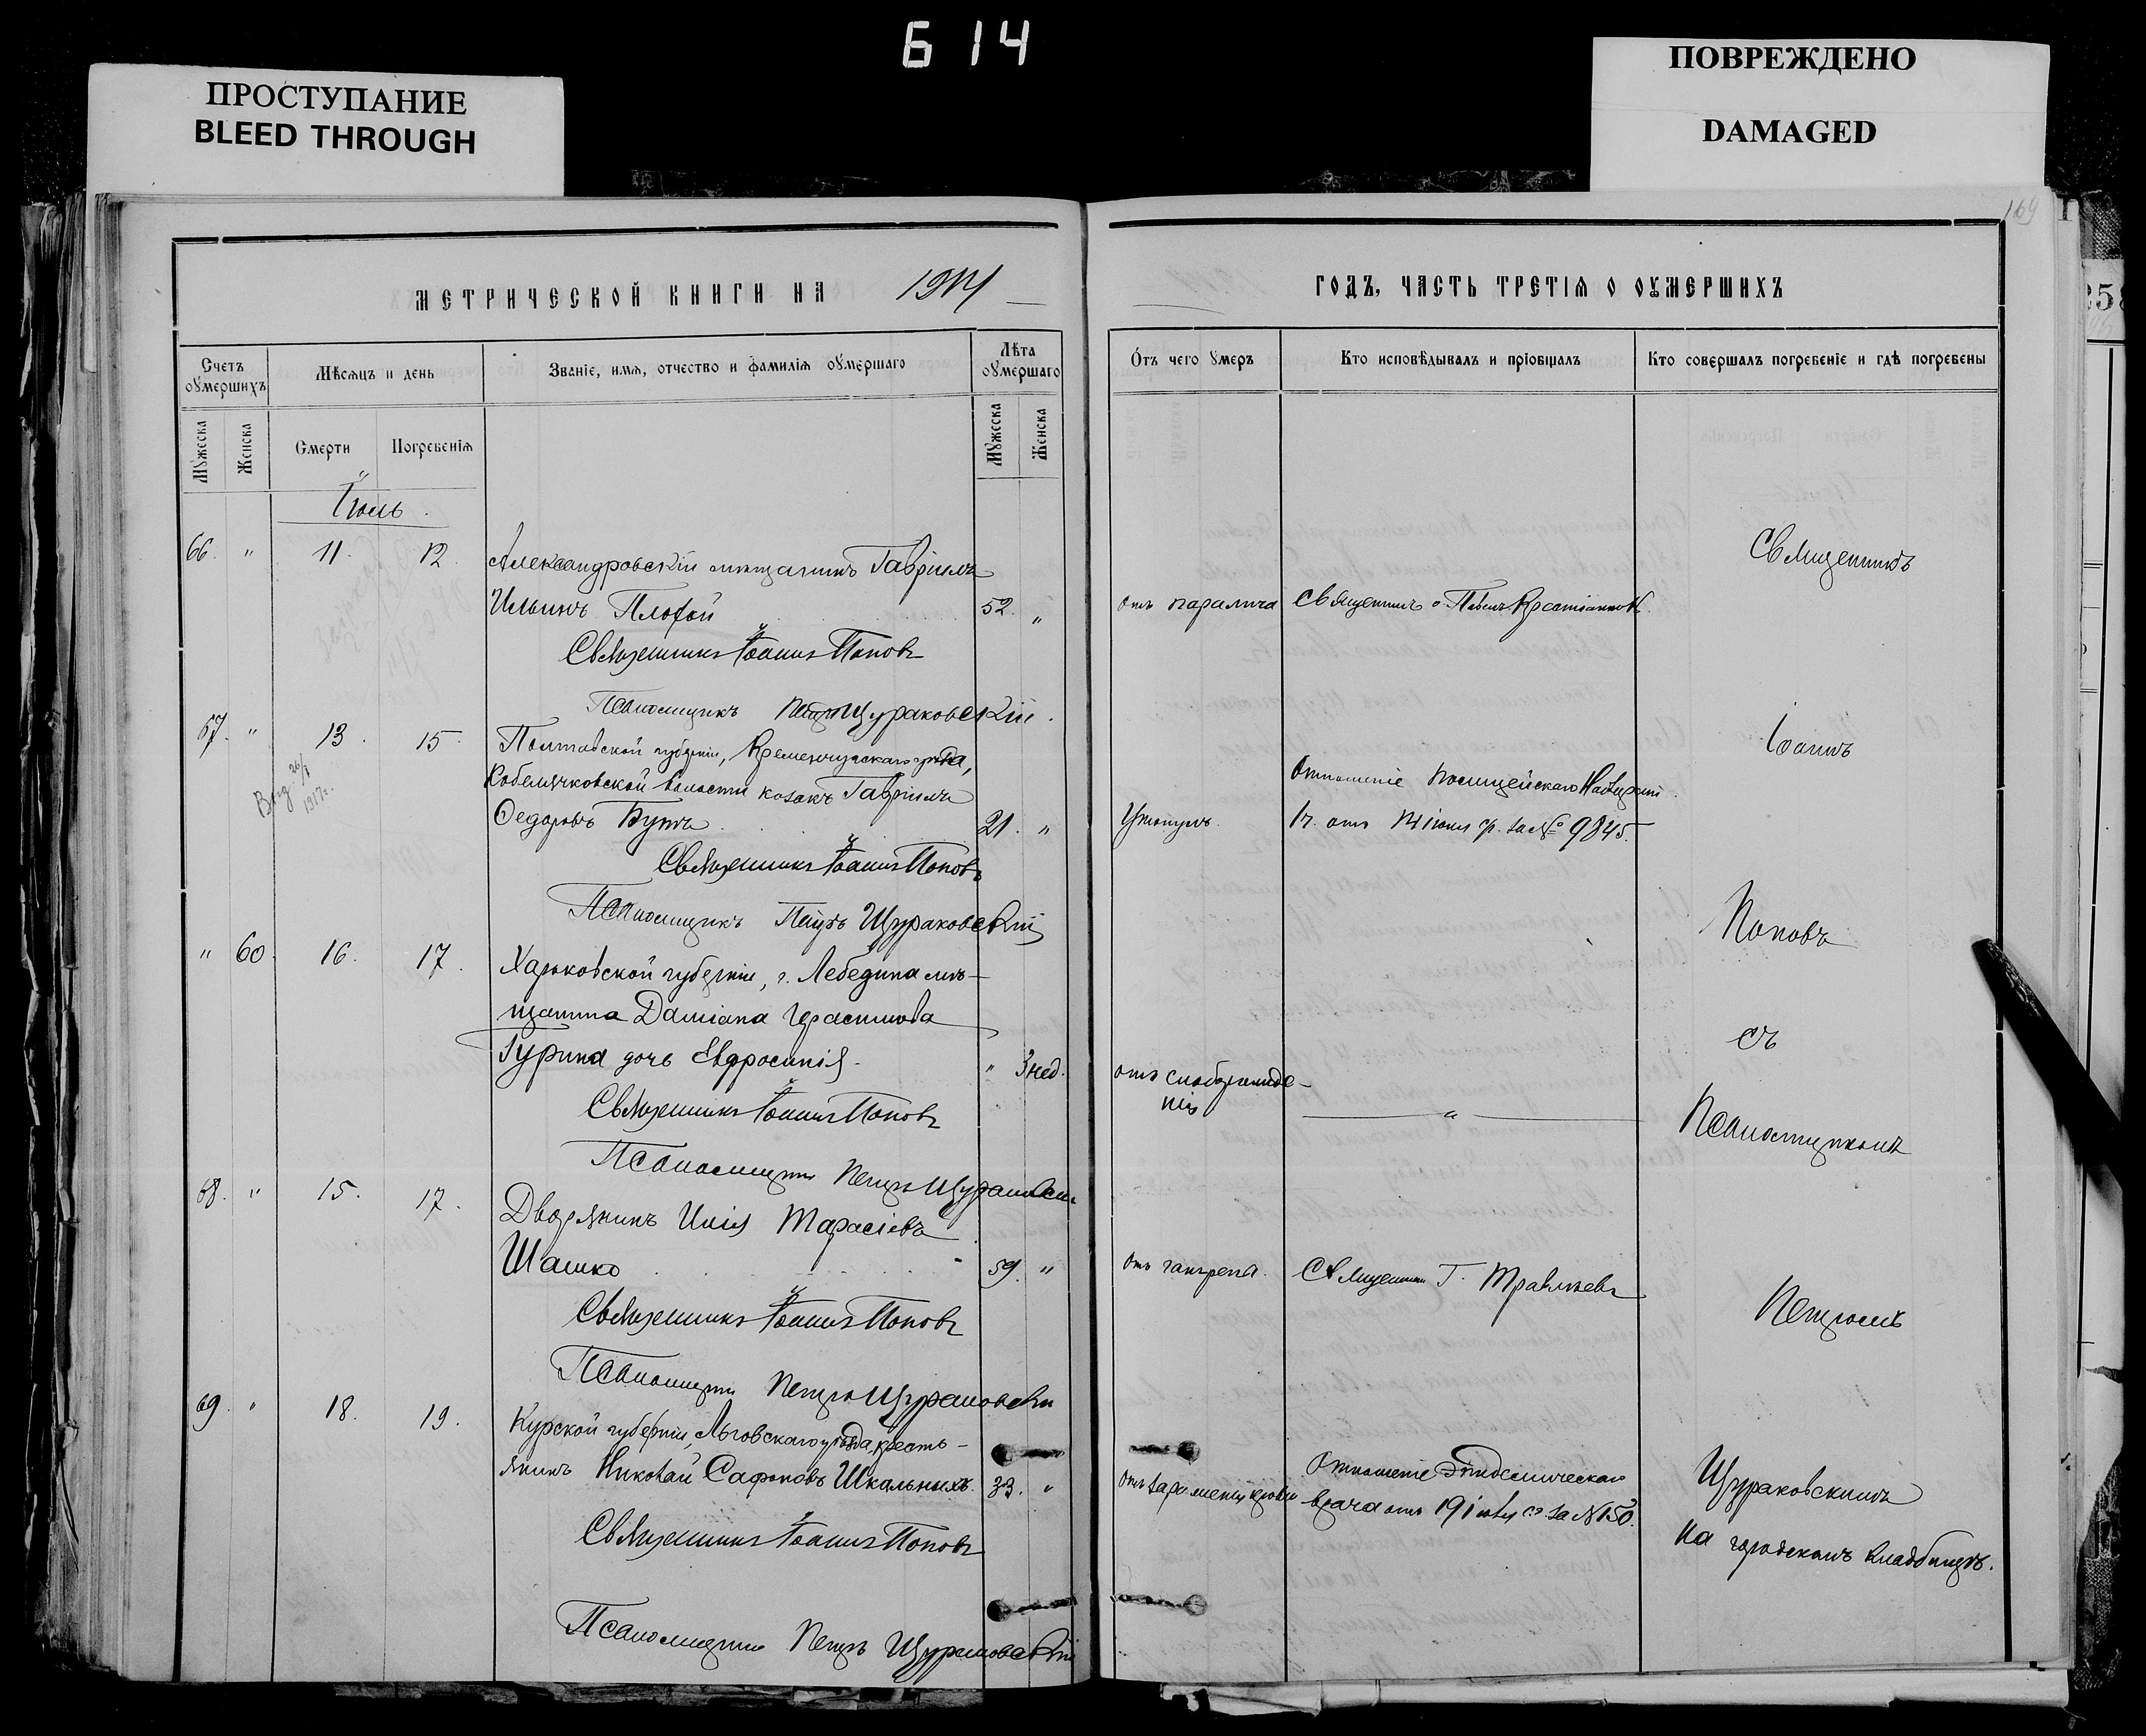 Б 14
ПРОСТУПАНИЕ
BLEED THROUGH
ПОВРЕЖДЕНО
DAMAGED
169
МЕТРИЧЕСКОЙ КНИГИ НА 1914
ГОДЪ, ЧАСТЬ ТРЕТІЯ О ОУМЕРШИХЪ
Счетъ оумершихъ
Мѣсяцъ и день
Званіе, имя, отчество и фамилія оумершаго
Лѣта оумершаго
Мужеска
Женска
Смерти
Погребенія
Мужеска
Женска
Отъ чего умеръ
Кто исповѣдывалъ и пріобщалъ
Кто совершалъ погребеніе и гдѣ погребены
Іюль.
66. " 11. 12. Александровскій мѣщанинъ Гавріилъ
Ильинъ Плохой 52. " отъ паралича Священникъ о. Павелъ
Священникъ Іоаннъ Поповъ
Псаломщикъ Петръ Щураковскій.
67. " 13. 15. Полтавской губерніи, Кременчугскаго уѣзда,
Кобелячковской волости козакъ Гавріилъ
Федоровъ Бутъ 21. " Утонулъ.
Отношеніе Полицейскаго
отъ 14 іюля с/г. за № 9845.
26/I
1917г.
Священникъ Іоаннъ Поповъ
Псаломщикъ Петръ Щураковскій
" 60. 16. 17. Харьковской губерніи, г. Лебедина мѣ-
щанина Даміана Герасимова
Гурина дочь Евфросинія. " 3 нед. отъ слаборожде-
нія "
Священникъ Іоаннъ Поповъ
Псаломщикъ Петръ Щураковскій
68. " 15. 17. Дворянинъ Илія Тарасіевъ
Шашко 59. " отъ гангрены. Священникъ Г. Травлѣевъ
Священникъ Іоаннъ Поповъ
Псаломщикъ Петръ Щураковскій
69. " 18. 19. Курской губерніи, Льговскаго уѣзда, кресть-
янинъ Николай Сафоновъ Шкальныхъ. 33. " отъ зараженія крови
Отношеніе Эпидемическаго
врача отъ 19 іюля с.г. за № 150.
Священникъ Іоаннъ Поповъ
Псаломщикъ Петръ Щураковскій
Священникъ
Іоаннъ
Поповъ
съ
Псаломщикомъ
Петромъ
Щураковскимъ
на городскомъ кладбищѣ.